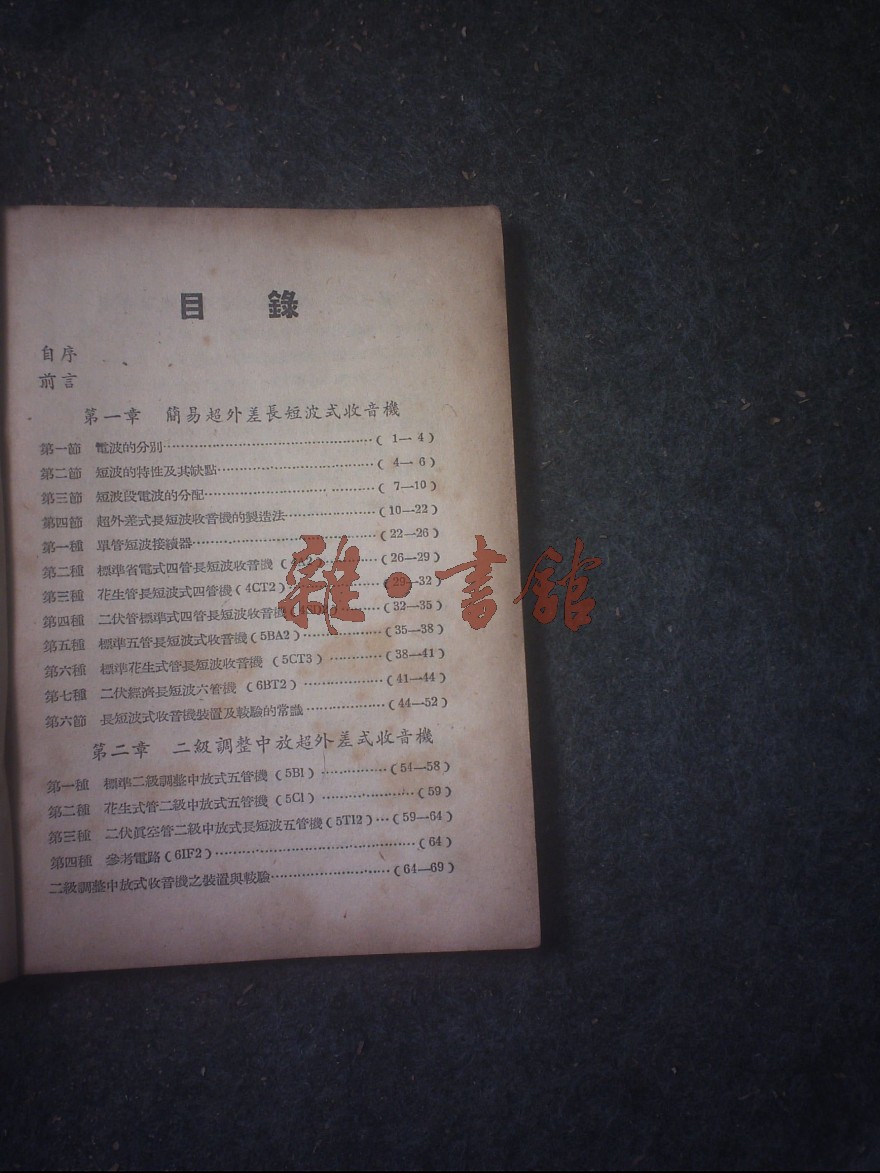 目 錄
自序
前言
第一章 簡易超外差長短波式收音機
第一節 電波的分別……(1—4)
第二節 短波的特性及其缺點……(4—6)
第三節 短波段電波的分配……(7—10)
第四節 超外差式長短波收音機的製造法……(10—22)
第一種 單管短波接續器……(22—26)
第二種 標準省電式四管長短波收音機……(26—29)
第三種 花生管長短波式四管機(4CT2)……(29—32)
第四種 二伏管標準式四管長短波收音機……(32—35)
第五種 標準五管長短波式收音機(5BA2)……(35—38)
第六種 標準花生式管長短波收音機(5CT3)……(38—41)
第七種 二伏經濟長短波六管機(6BT2)……(41—44)
第六節 長短波式收音機裝置及較驗的常識……(44—52)
第二章 二級調整中放超外差式收音機
第一種 標準二級調整中放式五管機(5B1)……(54—58)
第二種 花生式管二級中放式五管機(5C1)……(59)
第三種 二伏眞空管二級中放式長短波五管機(5TI2)…(59—64)
第四種 參考電路(6IF2)……(64)
二級調整中放式收音機之裝置與較驗……(64—69)
雜·書館